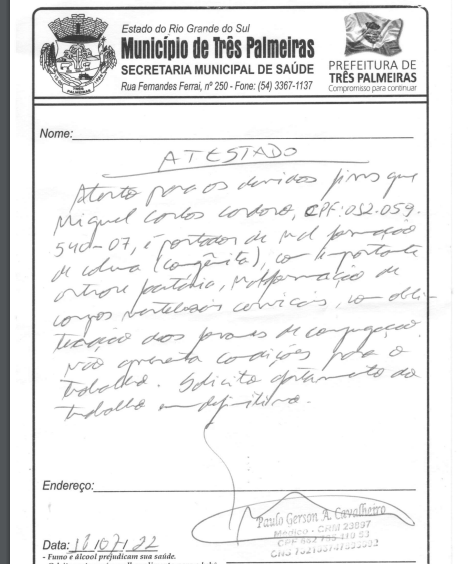 Estado do Rio Grande do Sul
Município de Três Palmeiras
SECRETARIA MUNICIPAL DE SAÚDE
Rua Fernandes Ferrai, nº 250 - Fone: (54) 3367-1137
TRÊS PALMEIRAS
PREFEITURA DE
TRÊS PALMEIRAS
Compromisso para continuar
Nome:
ATESTADO
Atesto para os devidos fins que
Miguel Carlos Cordoro, CPF: 052.059.
540-07, é portador de mal formação
de coluna (congênita), com importante
malformação de
corpos vertebrais cervicais, com obli-
teração dos forames de conjugação.
Não apresenta condições para o
trabalho. Solicito afastamento do
trabalho em definitivo.
Endereço:
Paulo Gerson A. Cavalheiro
Médico - CRM 23897
Data: 07/22
- Fumo e álcool prejudicam sua saúde.